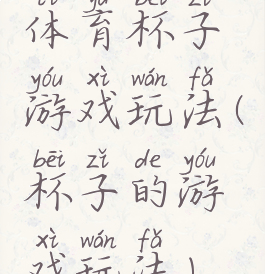 体育杯子
yóu xì wán fǎ
游戏玩法(
bēi zǐ de yóu
杯子的游
xì wán fǎ
戏玩法)